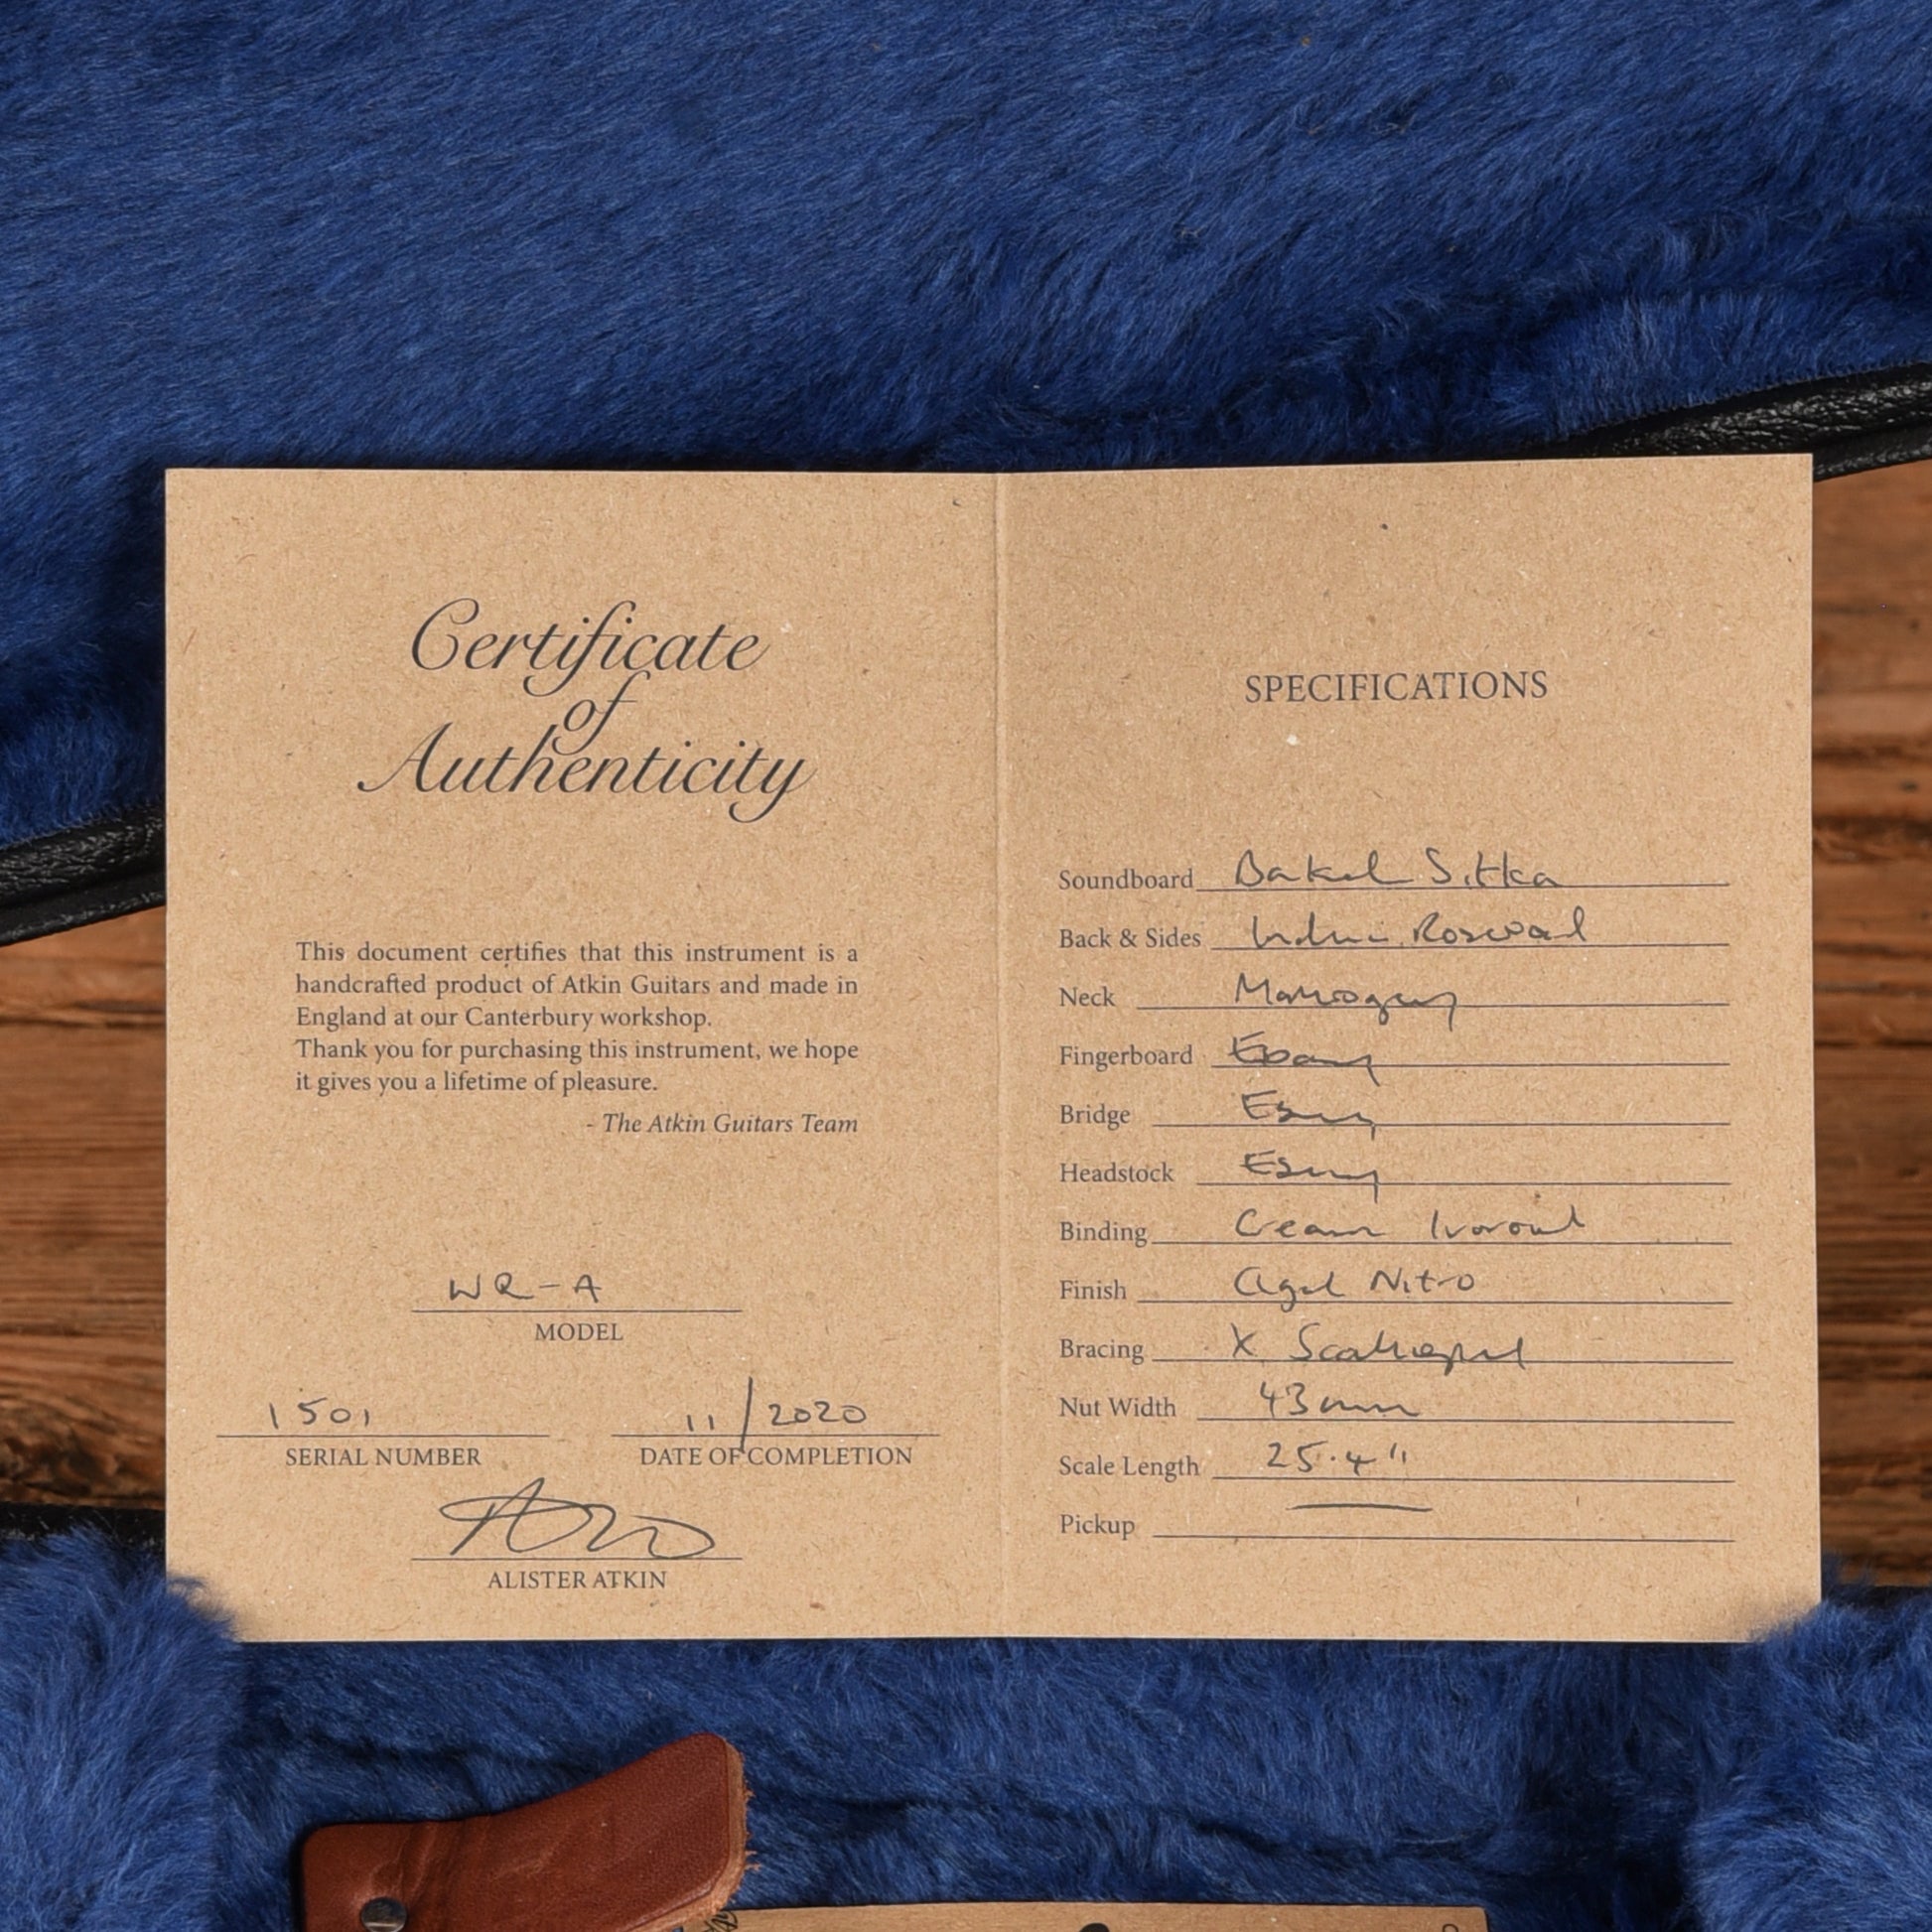 Certificate
of
Authenticity
This document certifies that this instrument is a
handcrafted product of Atkin Guitars and made in
England at our Canterbury workshop.
Thank you for purchasing this instrument, we hope
it gives you a lifetime of pleasure.
- The Atkin Guitars Team
WR-A
MODEL
1501
SERIAL NUMBER
11/2020
DATE OF COMPLETION
ALISTER ATKIN
SPECIFICATIONS
Soundboard Baked Sitka
Back & Sides Indian Rosewood
Neck Mahogany
Fingerboard Ebony
Bridge Ebony
Headstock Ebony
Binding Cream Ivoroid
Finish Aged Nitro
Bracing X Scalloped
Nut Width 43mm
Scale Length 25.4"
Pickup —